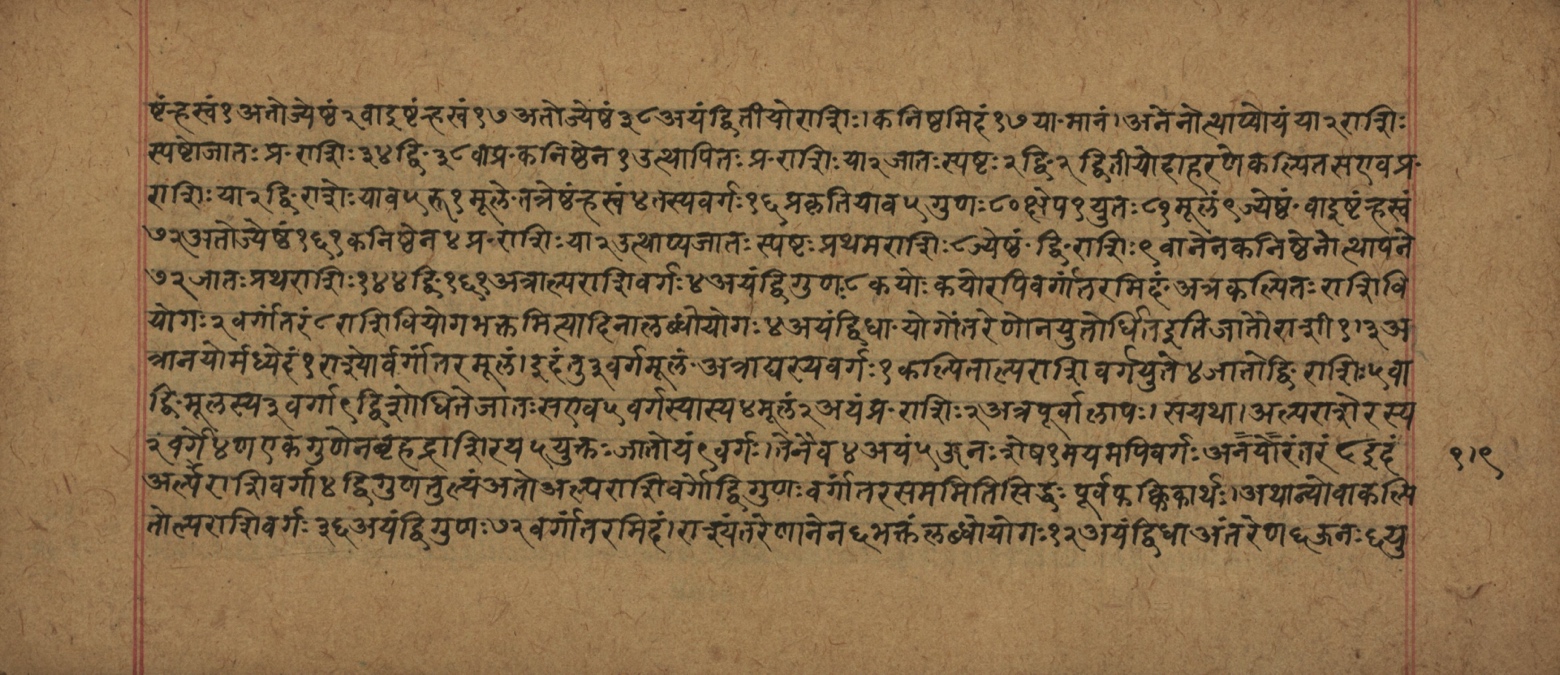 ष्टंन्हस्वं१अतोज्येष्ठं२वाइष्टंन्हस्वं१७अतोज्येष्ठं३८अयंद्वितीयोराशिः।कनिष्ठमिदं१७या·मानं।अनेनोत्थाप्योयंया२राशिः
स्पष्टोजातः प्र·राशिः३४द्वि·३८वाप्र·कनिष्ठेन१उत्थापितः प्र·राशिःया२जातःस्पष्टः२द्वि·२द्वितीयोदाहरणेकल्पितसएवप्र·
राशिःया२द्वि·राशेःयाव५रू१मूले·तत्रेष्टंन्हस्वं४तस्यवर्गः१६प्रकृतियाव५गुणः८०क्षेप१युतः८१मूलं९ज्येष्ठं·वाइष्टंन्हस्वं
७२अतोज्येष्ठं१६१कनिष्ठेन४प्र·राशिःया२उत्थाप्यजातः स्पष्टः प्रथमराशिः८ज्येष्ठं·द्वि·राशिः९वानेनकनिष्ठेनोत्थापने
७२जातः प्रथराशिः१४४द्वि·१६१अत्राल्पराशिवर्गः४अयंद्विगुणः८कयोः कयोरपिवर्गांतरमिदं·अत्रकल्पितः राशिवि
योगः२वर्गांतरं८राशिवियोगभक्तमित्यादिनालब्धोयोगः४अयंद्विधा·योगोंतरेणोनयुतोर्धितइतिजातौराशी१।३अ
त्रानयोर्मध्येदं१राश्योर्वर्गांतरमूलं।इदंतु३वर्गमूलं·अत्राद्यस्यवर्गः१कल्पिताल्पराशिवर्गयुते४जातोद्वि·राशिः५वा
द्वि·मूलस्य३वर्गा९द्विशोधितेजातःसएव५वर्गस्यास्य४मूलं२अयंप्र·राशिः२अत्रपूर्वालापः।सयथा।अल्पराशेरस्य
२वर्गे४णएकगुणेनबृहद्राशिरय५युक्तःजातोयं९वर्गः।तेनैव४अयं५ऊनःशेष१मयमपिवर्गः अनयोरंतरं८इदं
अल्पराशिवर्गा४द्विगुणतुल्यंअतोअल्पराशिवर्गोद्विगुणःवर्गांतरसममितिसिद्धः पूर्वफक्किकार्थः।अथान्योवाकल्पि
तोल्पराशिवर्गः३६अयंद्विगुणः७२वर्गांतरमिदं।राश्यंतरेणानेन६भक्तंलब्धोयोगः१२अयंद्विधाअंतरेण६ऊनः६यु
९।९